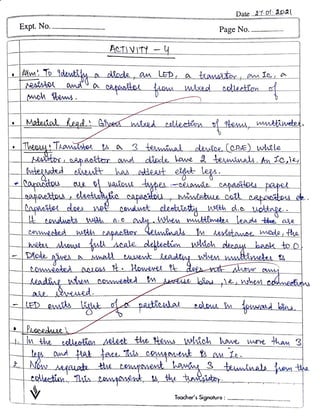 Date 27.01.2021
Expt. No.
Page No.
ACTIVITY - 4
• Aim: To Identify a diode, an LED, a transistor, an Ic, a
resistor and a capacitor from mixed collection of
such Items.
• Material Reqd: Given mixed collection of Items, multimeter.
• Theory: Transistor is a 3 terminal device (CBE) while
resistor, capacitor and diode have 2 terminals. An IC, i.e,
Integrated circuit has atleast eight legs.
- Capacitors are of various types - ceramic capacitors paper
capacitors, electrolytic capacitors, miniature coil capacitors etc.
Capacitor does not conduct electricity with d.c voltage.
It conducts with a.c only. When multimeter leads the are
connected with capacitor terminals In resistance mode, the
meter shows full scale deflection which decay back to 0.
- Diode gives a small current reading when multimeter is
connected across it. However it does not show any
reading when connected In reverse bias, i.e, when connections
are reversed.
- LED emits light of a particular colour In forward bias.
• Procedure:
1. In the collection select the Items which have more than 3
legs and flat face. This component is an Ic.
2. Now separate the component having 3 terminals from the
collection. This component is the transistor.
Teacher's Signature :